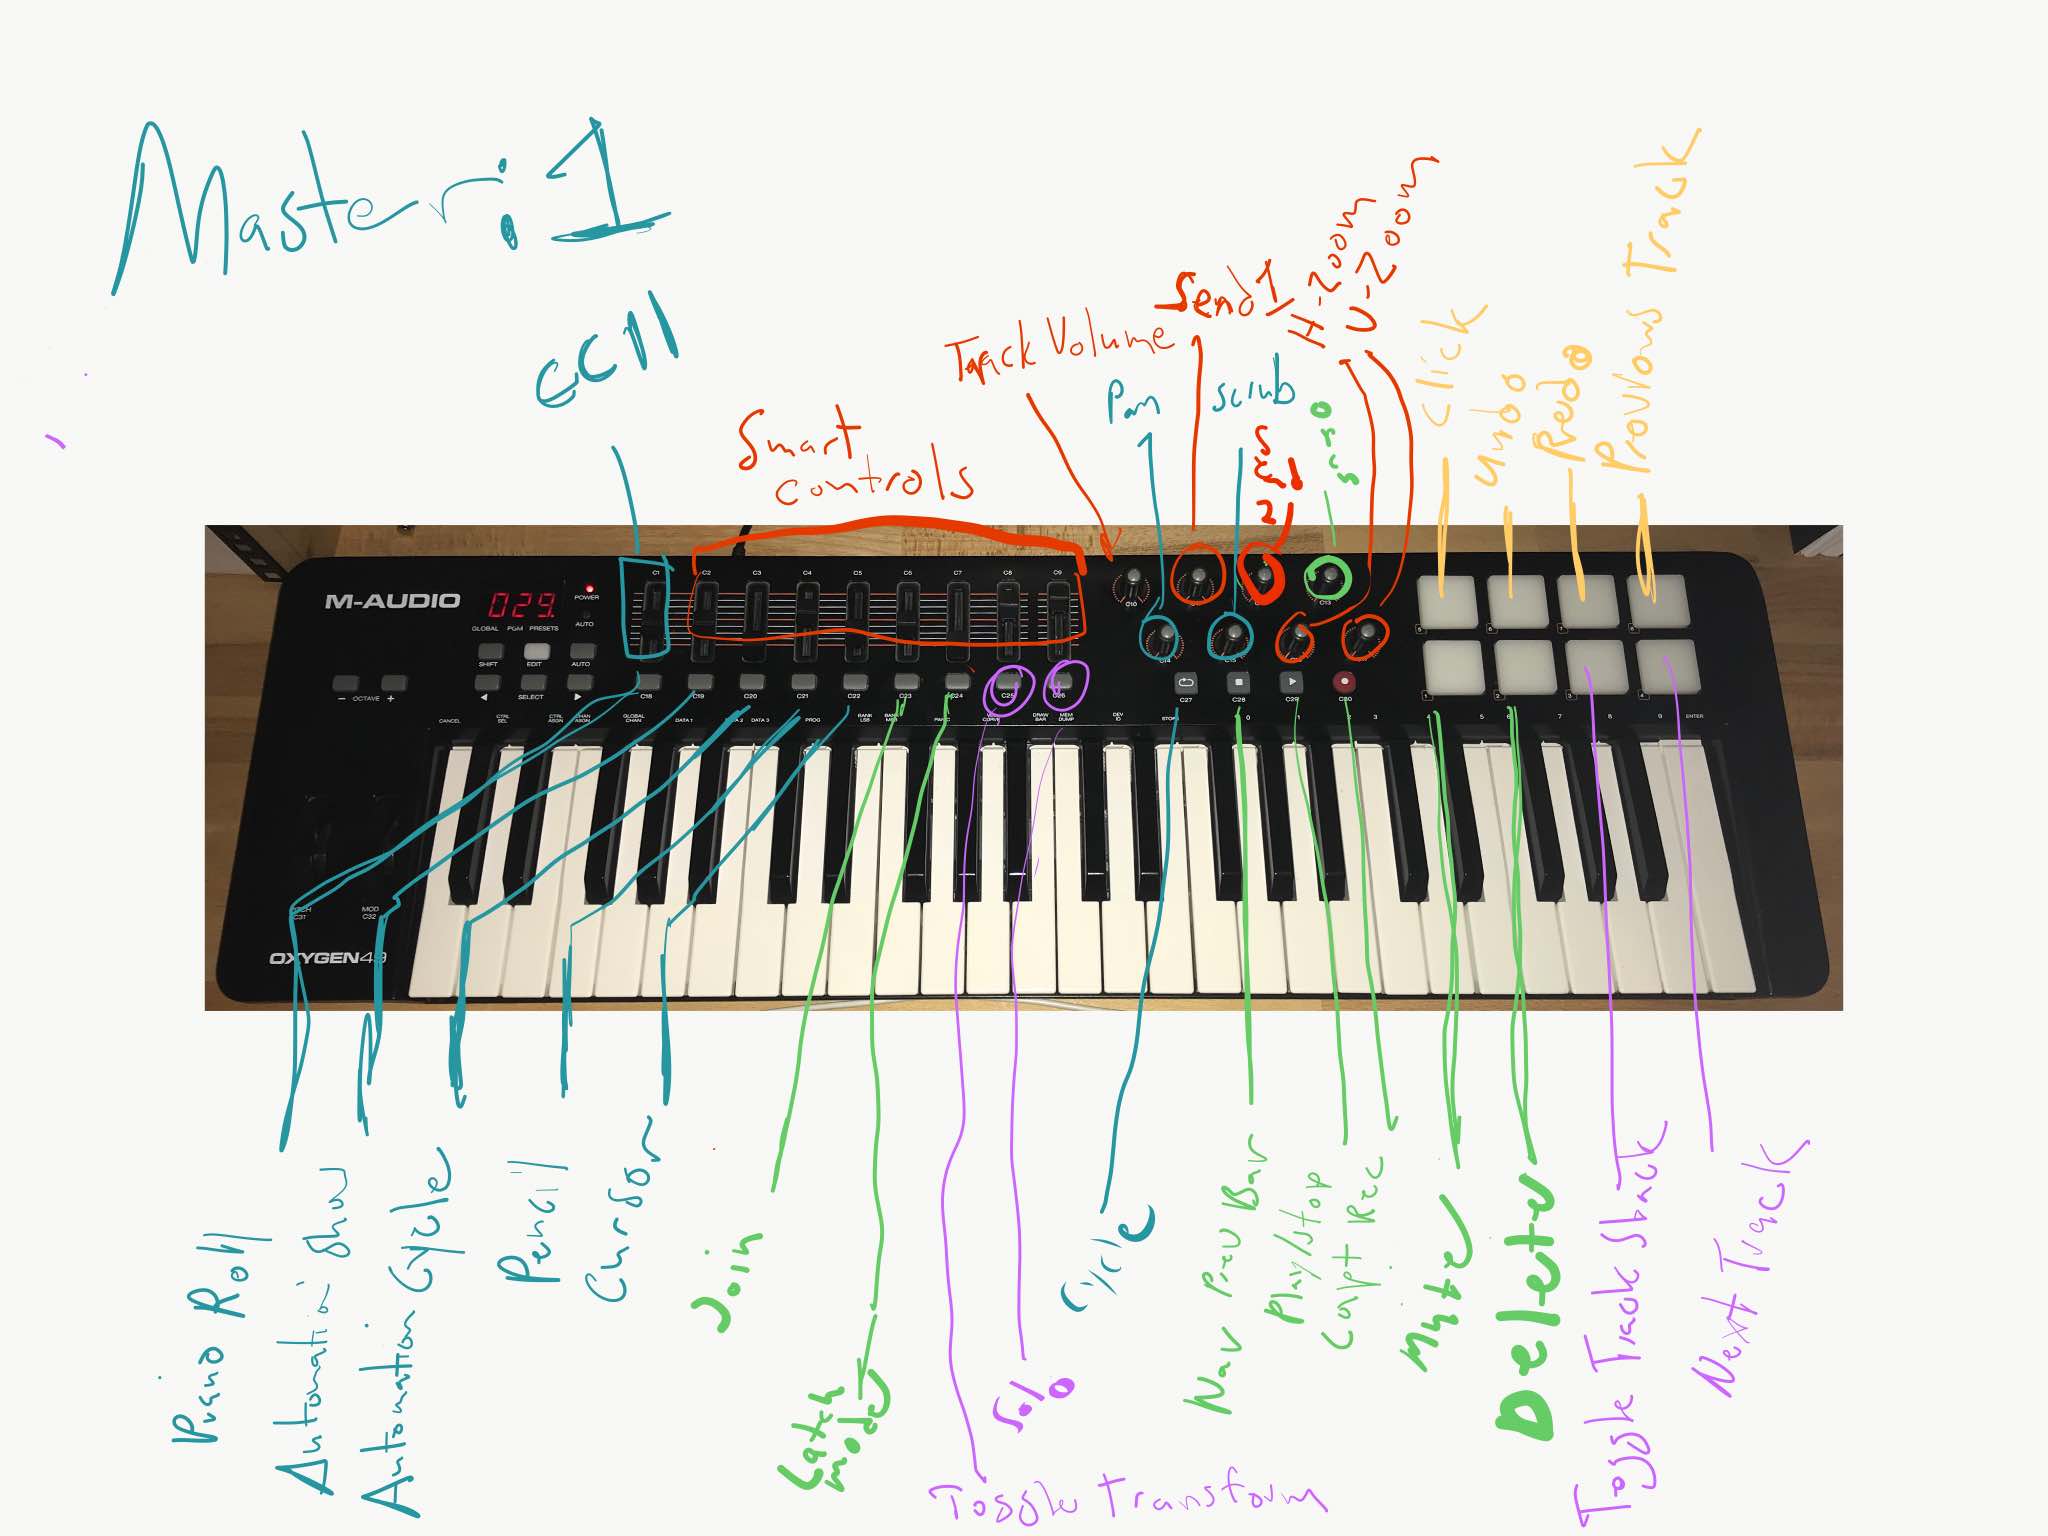 Master: 1
CC11
Smart
controls
Track Volume
Pan
Send 1
scrub
H-zoom
V-zoom
Click
undo
Previous Track
C1 C2 C3 C4 C5 C6 C7 C8 C9
M-AUDIO
029.
POWER
GLOBAL PGM PRESETS
AUTO
SHIFT EDIT AUTO
◀ SELECT ▶
− OCTAVE +
C10
C13
C14
C18 C19 C20 C21 C22 C23 C24 C25 C26
C27 C28 C29 C30
5 6 7 8
1 2 3 4
CANCEL
CTRL SEL
CTRL ASGN
CHAN ASGN
GLOBAL CHAN
DATA 1
DATA 2
DATA 3
PROG
BANK LSB
BANK MSB
PANIC
VEL CURVE
DRAW BAR
MEM DUMP
DEV ID
STORE
0 1 2 3 4 5 6 7 8 9 ENTER
PITCH C31
MOD C32
OXYGEN49
Piano Roll
Automation Show
Automation Cycle
Pencil
Cursor
Join
Latch
mode
Toggle Transform
Solo
Cycle
Nav Prev Bar
Play/Stop
Capt Rec
Mute
Delete
Toggle Track Stack
Next Track